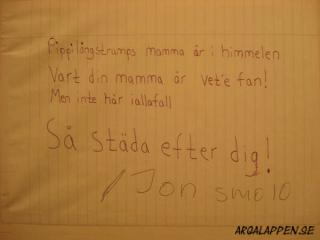 Pippilångstrumps mamma är i himmelen
Vart din mamma är vet'e fan!
Men inte här iallafall
Så städa efter dig!
/Jon smolo
ARGALAPPEN.SE